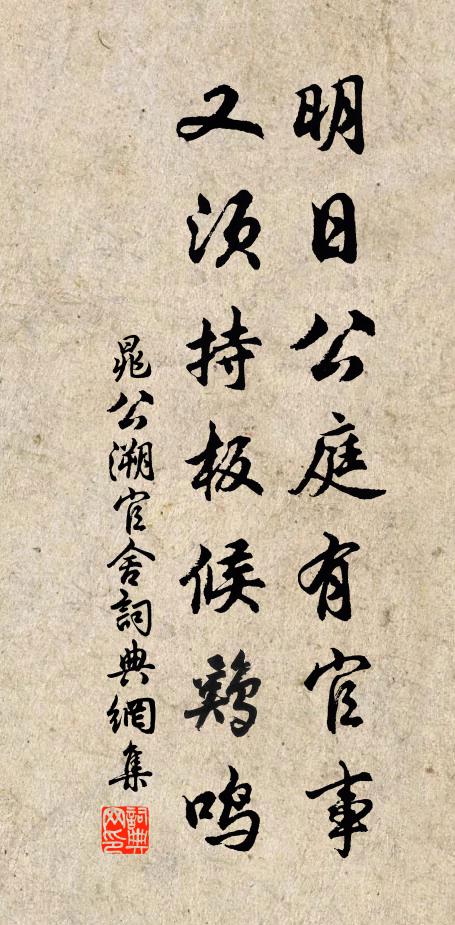 明日公庭有官事
又须持板候鷄鸣
晁公溯官舍詞典網集
詞典網印